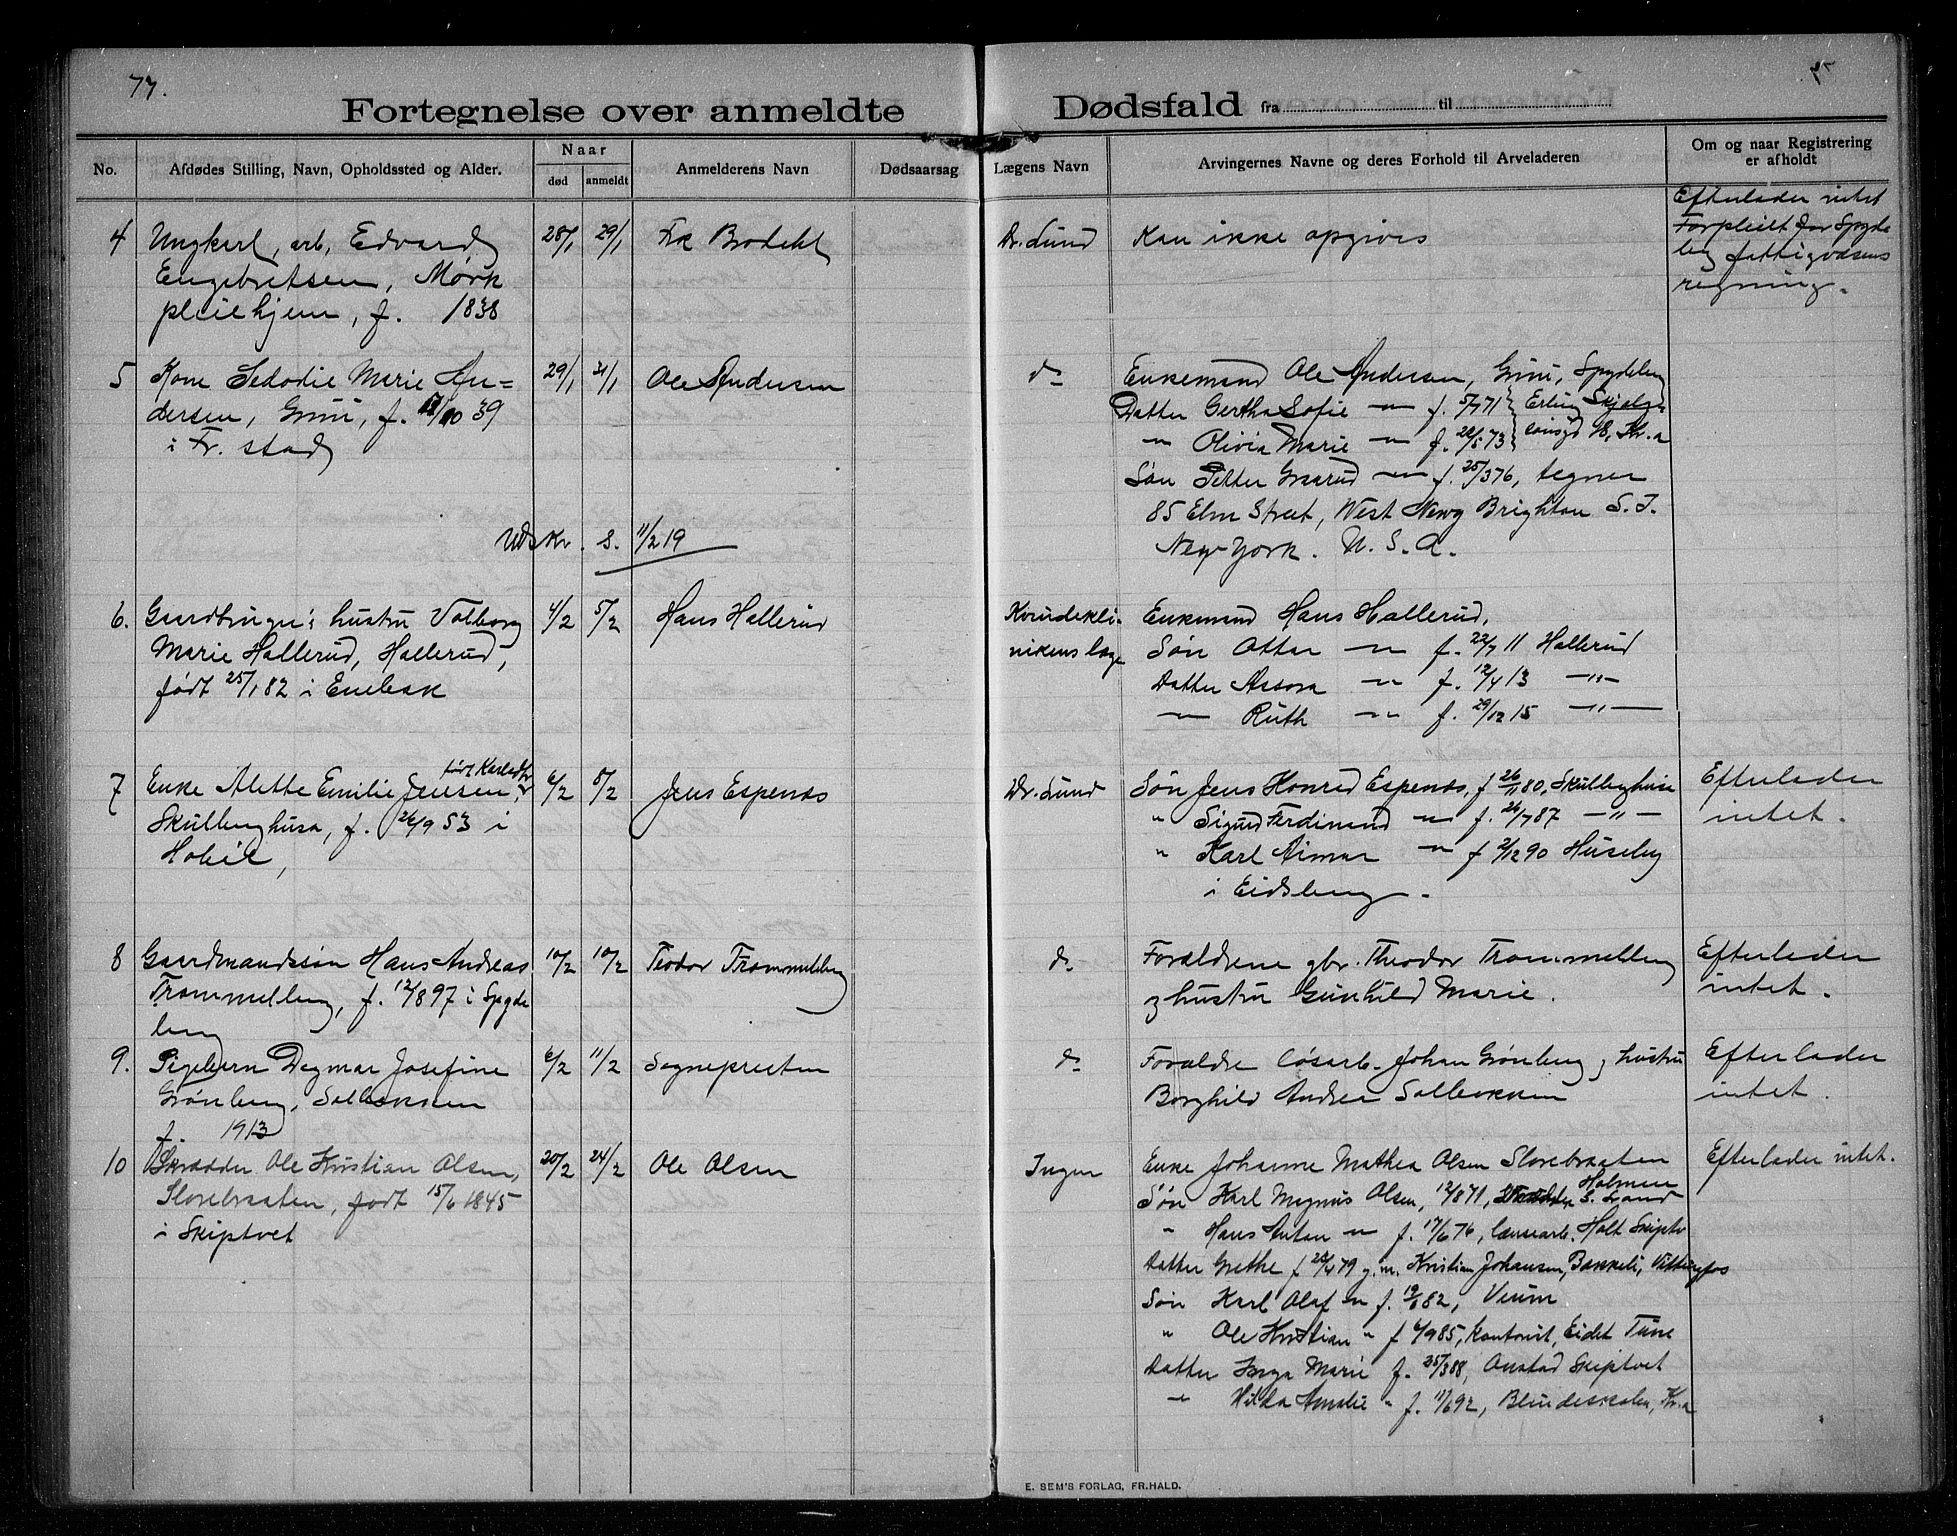 77.
Fortegnelse over anmeldte Dødsfald fra til
No.
Afdødes Stilling, Navn, Opholdssted og Alder.
Naar
død
anmeldt
Anmelderens Navn
Dødsaarsag
Lægens Navn
Arvingernes Navne og deres Forhold til Arveladeren
Om og naar Registrering
er afholdt
4
Ungkarl, arb. Edvard
Engebretsen, Mørk
pleiehjem, f. 1838
28/1
29/1
Dr. Lund
Kan ikke opgives
Efterlader intet
Forpleiet for Spyde
berg fattigvæsens
regning.
5
Kone Sedodie Marie An=
dersen, Grini, f. 10 39
i Fr. stad
29/1
31/1
Ole Andersen
d~
Enkemand Ole Andersen, Grini, Spydeberg
Datter Gertha Sofie — f. 5/7 71 Erling Skjalgs
" Olivia Marie — f. 28/5 73 sønsgd Kr.a
Søn Petter Gmarud — f. 25/3 76, tegner
85 Elm Street, West New Brighton S. I.
New-York. U. S. A.
Udskr. S. 11/2 19
6.
Gaardbruger's hustru Valborg
Marie Hallerud, Hallerud,
født 25/1 82 i Enebak
4/2
5/2
Hans Hallerud
Kvindekli-
nikens læge
Enkemand Hans Hallerud,
Søn Ottar — f. 22/7 11 Hallerud
Datter Assora — f. 12/4 13 —"—
— Ruth — f. 29/12 15 —"—
7
Enke Alette Emilie Jensen, født Karlsdtr
Skullerghusa, f. 26/9 53 i
Hobøl,
6/2
8/2
Jens Espenæs
Dr. Lund
Søn Jens Konrad Espenæs, f 26/11 80, Skullerghusa
" Sigurd Ferdinand — f. 26/7 87 —"—
" Karl Aimar — f 2/12 90 Huseby
i Eidsberg.
Efterlader
intet.
8
Gaardmandssøn Hans Andreas
Trømmelberg, f. 12/8 97 i Spyde
berg
10/2
10/2
Teodor Trømmelberg
d~
Forældrene gbr. Theodor Trømmelberg
og hustru Gunhild Marie.
Efterlader
intet.
9.
Pigebarn Dagmar Josefine
Grønberg, Solbakken
f. 1913
6/2
11/2
Sognepresten
d~
Forældre løsarb. Johan Grønberg og hustru
Borghild Andrea Solbakken
Efterlader
intet.
10
Skrædder Ole Kristian Olsen,
Slorebraaten, født 15/6 1845
i Skiptvet
20/2
24/2
Ole Olsen
Ingen
Enke Johanne Mathea Olsen Slorebraaten
Søn Karl Magnus Olsen, 12/8 71, Holmen S. Strand
" Hans Anton — f. 17/6 76, lænsearb. Holt Skiptv
Datter Grethe f 24/4 79 g.m. Kristian Johansen, Bakkeli, Vittingfos
Søn Karl Olaf — f. 19/6 82, Veum
" Ole Kristian " f 6/9 85, kontorist, Eidet Tune
Datter Inga Marie f. 25/3 88, Onstad Skiptvet
" Hilda Amalie " f. 11/6 92, Blindeskolen, Kr.a
Efterlader intet.
E. SEM'S FORLAG, FR.HALD.